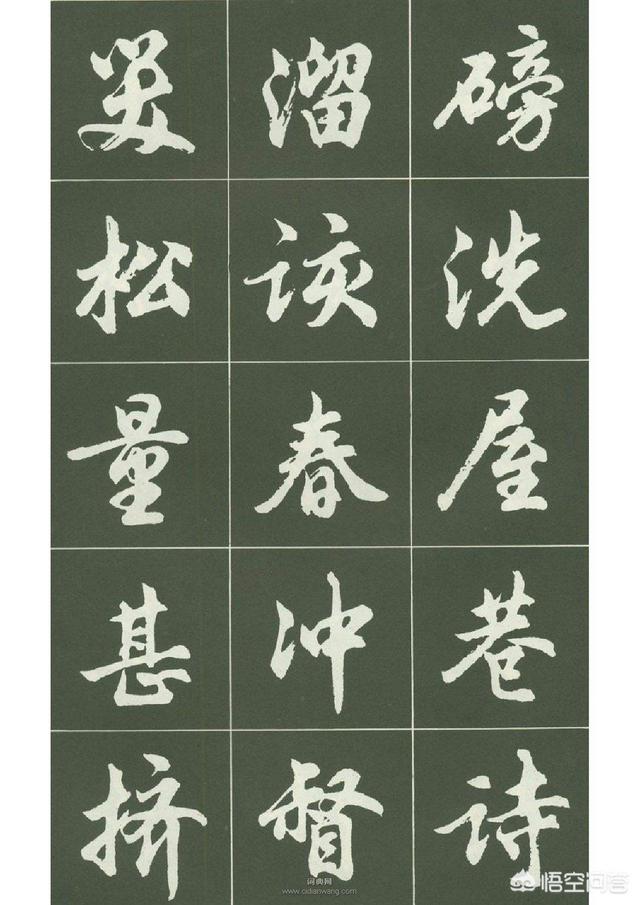 溜 磅
松 该 洗
量 春 屋
甚 冲 巷
挤 督 诗
词典网
www.cidianwang.com
悟空问答